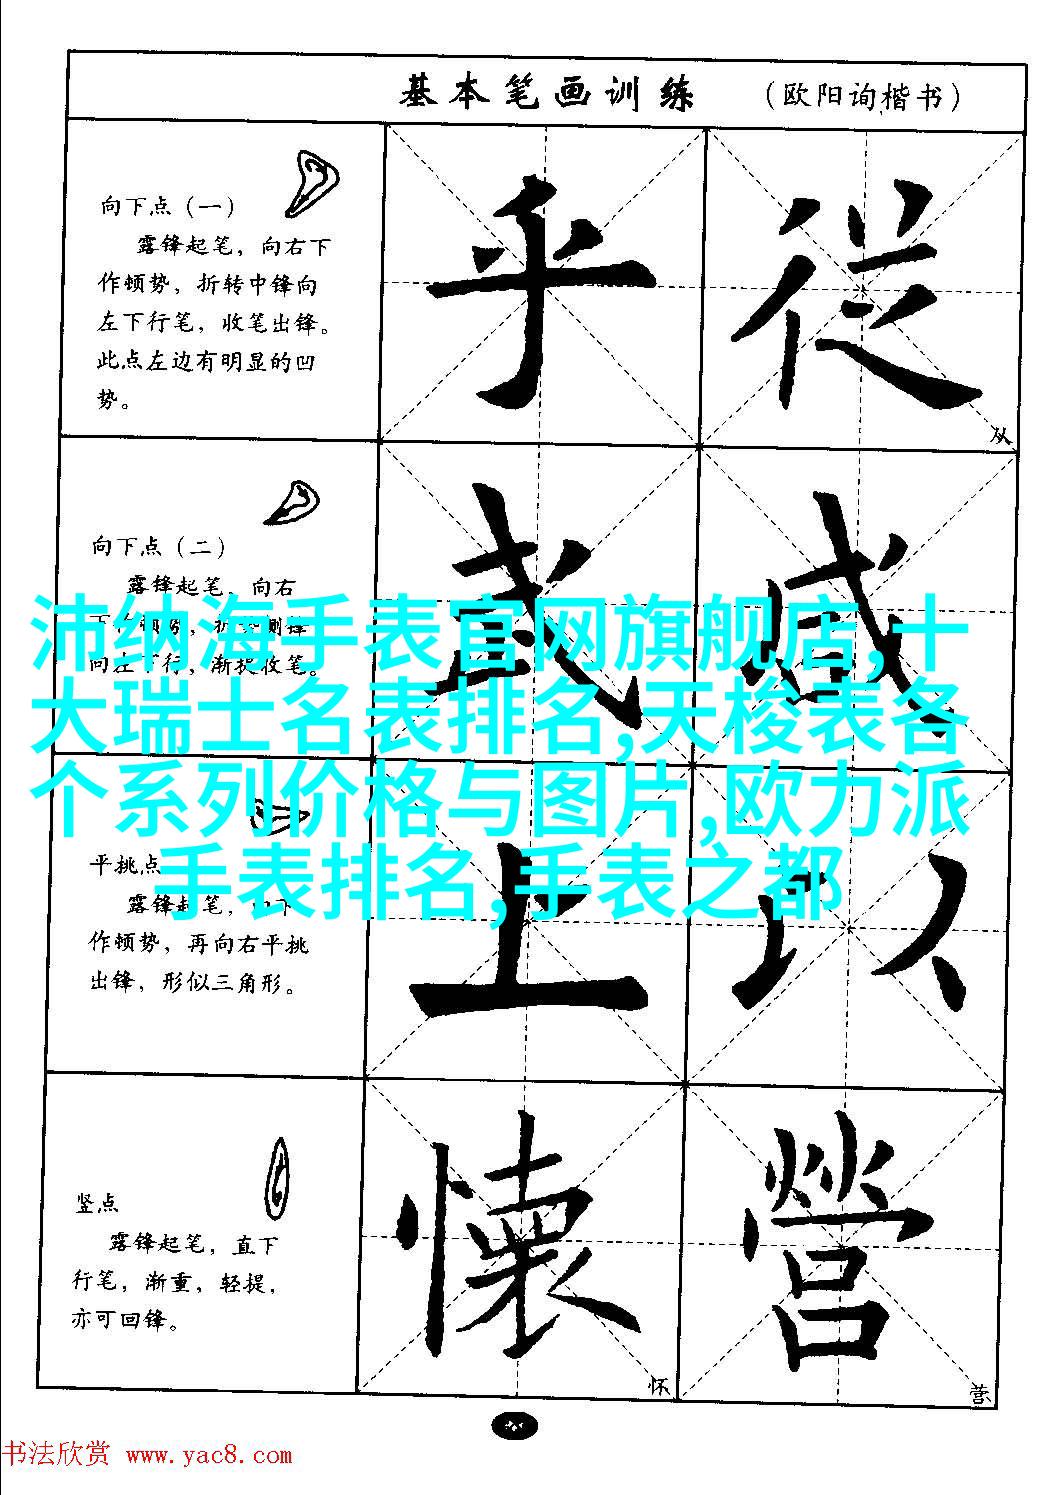 基本笔画训练 （欧阳询楷书）
向下点（一）
露锋起笔，向右下
作顿势，折转中锋向
左下行笔，收笔出锋。
此点左边有明显的凹
势。
乎 從
从
向下点（二）
露锋起笔，向右
向左下行，渐提收笔。
感
沛纳海手表官网旗舰店,十
大瑞士名表排名,天梭表各
个系列价格与图片,欧力派
手表排名,手表之都
平挑点
露锋起笔，向下
作顿势，再向右平挑
出锋，形似三角形。
上 以
竖点
露锋起笔，直下
行笔，渐重，轻提，
亦可回锋。
懷 營
怀 营
书法欣赏 www.yac8.com